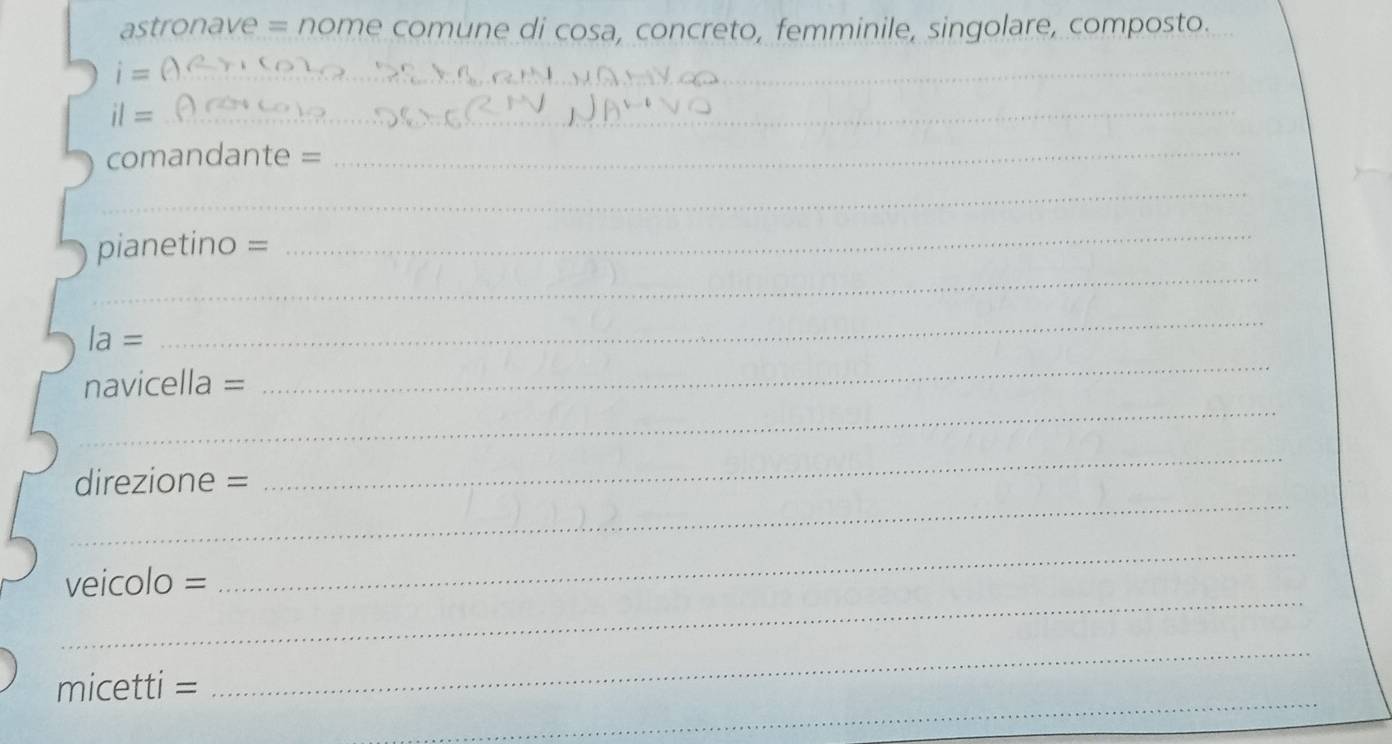 astronave = nome comune di cosa, concreto, femminile, singolare, composto.
i = ARTICOLO
il = ARTICOLO
comandante =
pianetino =
la =
navicella =
direzione =
veicolo =
micetti =